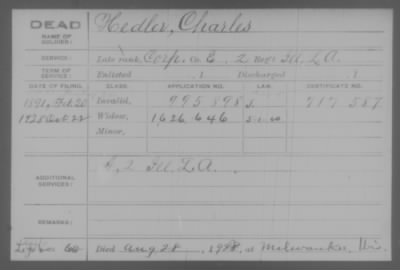 DEAD
NAME OF SOLDIER: Hedler, Charles
SERVICE: Late rank, Corp. Co. E, 2 Reg't Ill. L. A.
TERM OF SERVICE: Enlisted , 1 Discharged , 1
DATE OF FILING. CLASS. APPLICATION NO. LAW. CERTIFICATE NO.
1891, Feb. 20 Invalid, 995898 717587
1928 Oct 22 Widow, 1626646 5-1-20
Minor,
ADDITIONAL SERVICES: 2 Ill. L. A.
REMARKS:
Died Aug 28, 1928, at Milwaukee, Wis.